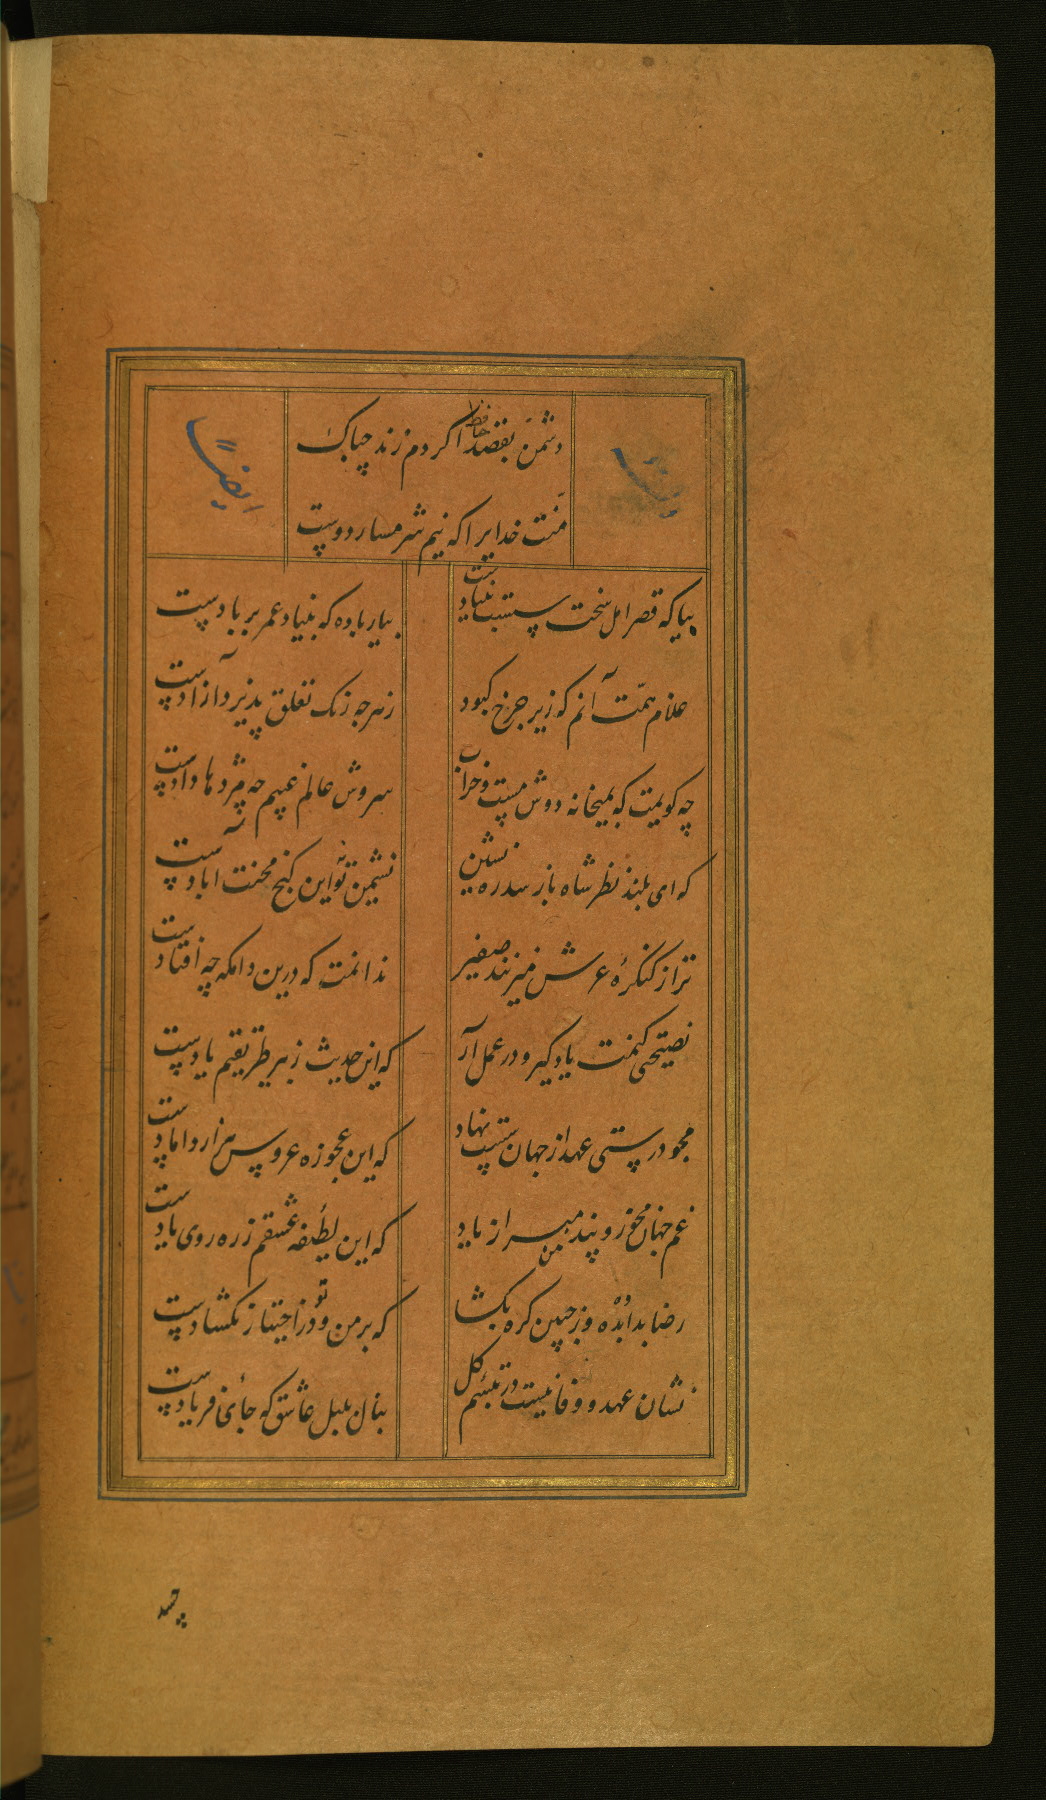 دشمن بقصد حافظ اکر دم زند چه باک
منت خدایرا که نیم شرمسار دوست
ایضاً
بیا که قصر امل سخت سست بنیادست
بیار باده که بنیاد عمر بر بادست
غلام همت آنم که زیر چرخ کبود
زهرچه رنک تعلق پذیرد آزادست
چه کویمت که بمیخانه دوش مست و خراب
سروش عالم غیبم چه مژدها دادست
که ای بلند نظر شاه باز سدره نشین
نشیمن تو نه این کنج محنت آبادست
ترا ز کنکرهٔ عرش میزنند صفیر
ندانمت که درین دامکه چه افتادست
نصیحتی کنمت یاد کیر و در عمل آر
که این حدیث ز پیر طریقتم یادست
مجو درستی عهد از جهان سست نهاد
که این عجوزه عروس هزار دامادست
غم جهان مخور و پند من مبر از یاد
که این لطیفه عشقم ز ره روی یادست
رضا بداده بده وز جبین کره بکشا
که بر من و تو در اختیار نکشادست
نشان عهد و وفا نیست در تبسم کل
بنال بلبل عاشق که جای فریادست